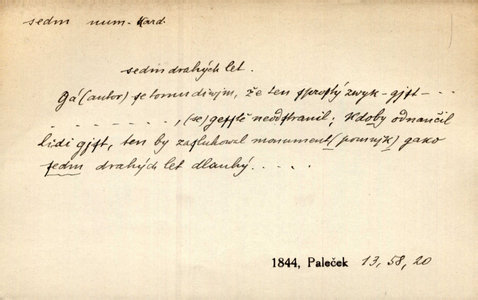 sedm num. kard.
sedm drahých let.
Gá (autor) se tomu diwjm, že ten sprostý zwyk - gjst - - - -
- - - - - - - - - -, (se) gesstě neodstranil; kdoby odnaučil
lidi gjst, ten by zasluhowal monument (pomnjk) gako
sedm drahých let dlauhý. . . . .
1844, Paleček 13, 58, 20